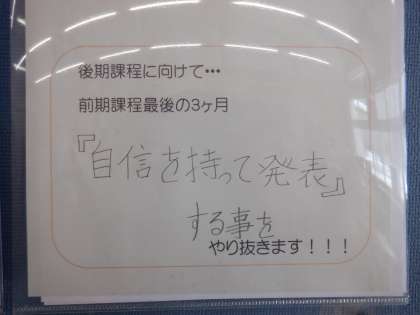 後期課程に向けて・・・
前期課程最後の3ヶ月
『自信を持って発表』
する事を
やり抜きます！！！